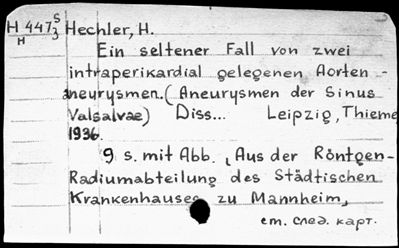 H 447/3 S Hechler, H.
H
Ein seltener Fall von zwei
intraperikardial gelegenen Aorten-
aneurysmen. (Aneurysmen der Sinus
Valsalvae) Diss... Leipzig, Thieme
1936.
9 s. mit Abb. (Aus der Röntgen-
Radiumabteilung des Städtischen
Krankenhauses zu Mannheim,
ст. след. карт.